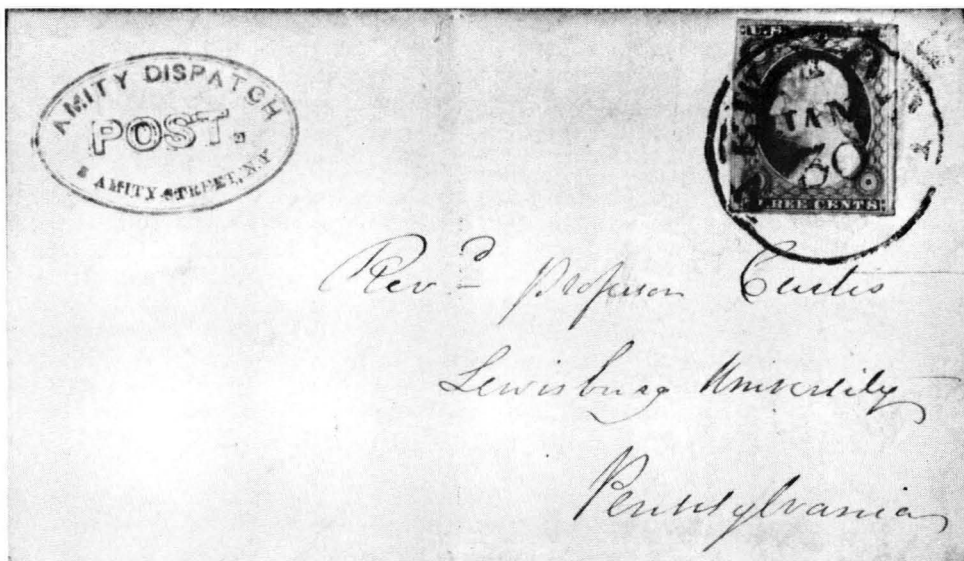 AMITY DISPATCH
POST.
AMITY STREET, N.Y
JAN
60
REE CENTS
Rev.d Professor Curtis
Lewisburg University
Pennsylvania